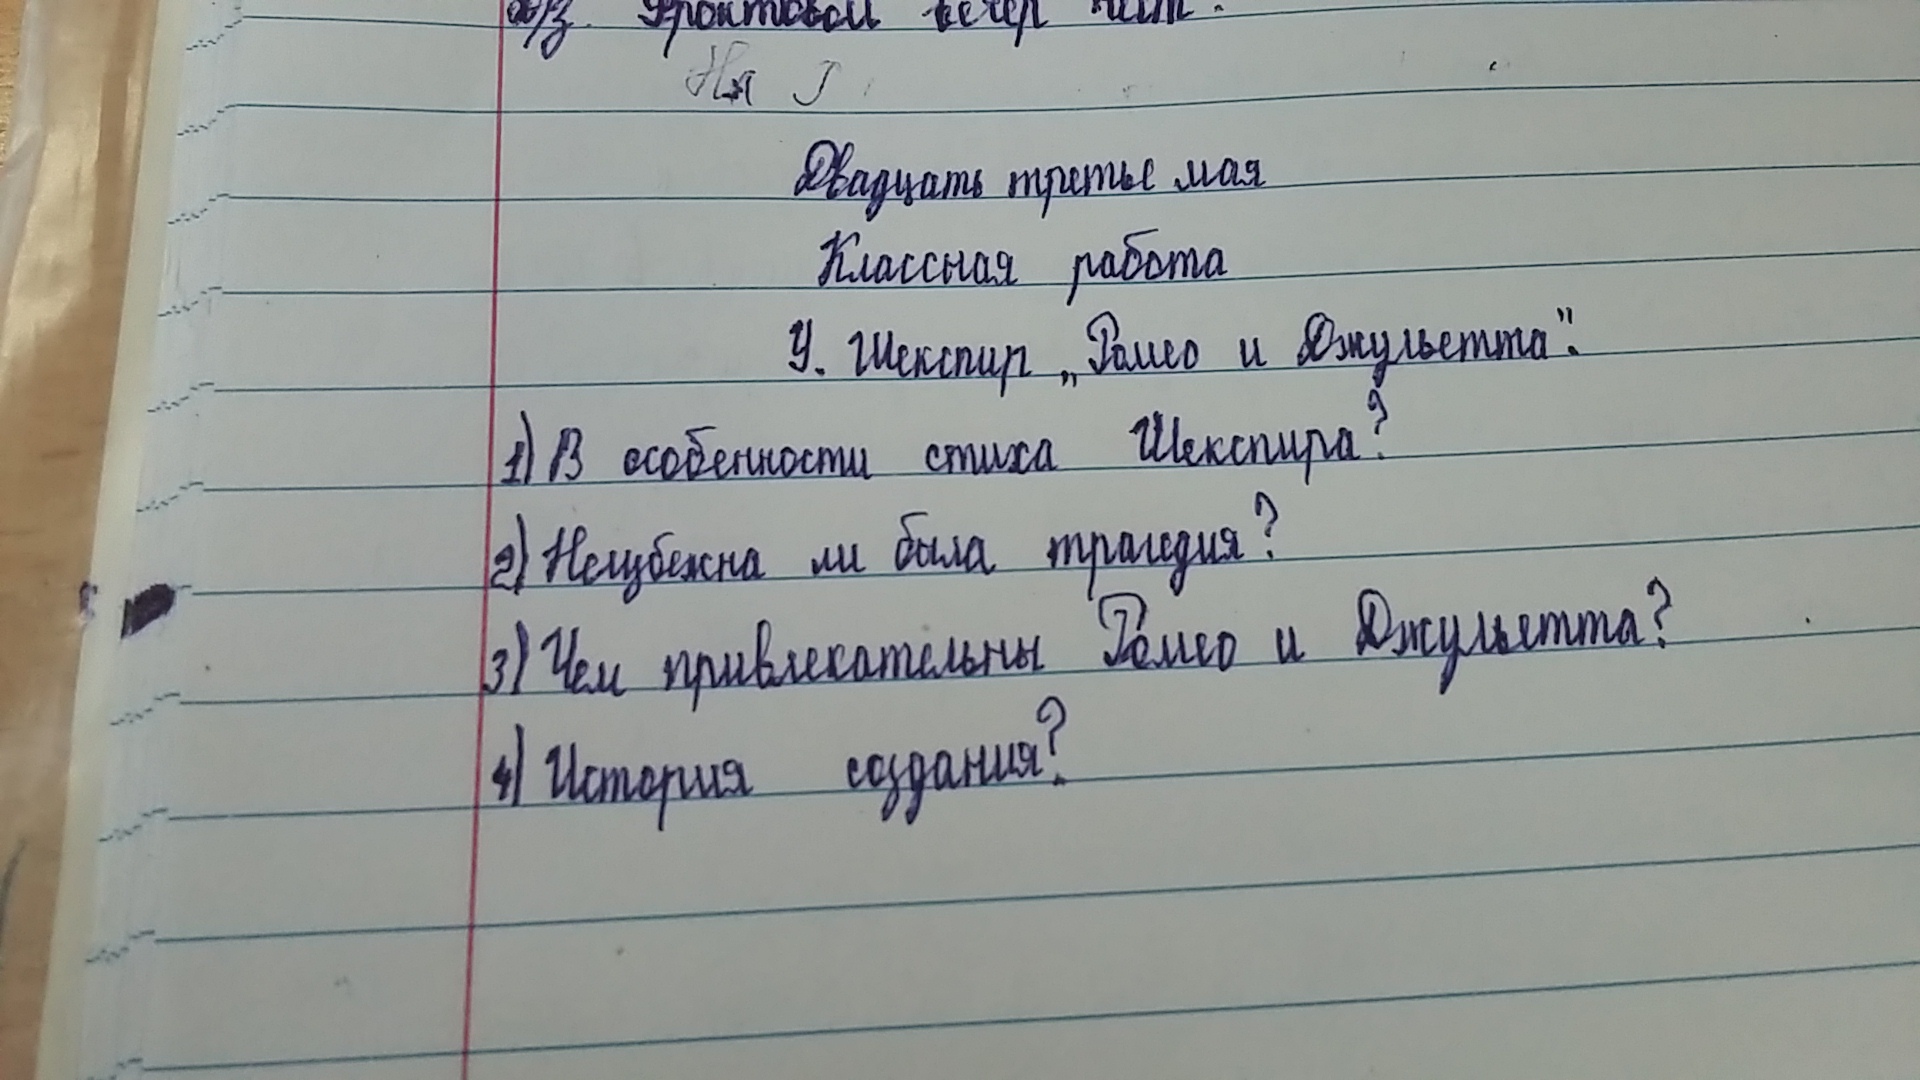 Двадцать третье мая
Классная работа
У. Шекспир „Ромео и Джульетта".
1) В особенности стиха Шекспира?
2) Неизбежна ли была трагедия?
3) Чем привлекательны Ромео и Джульетта?
4) История создания?